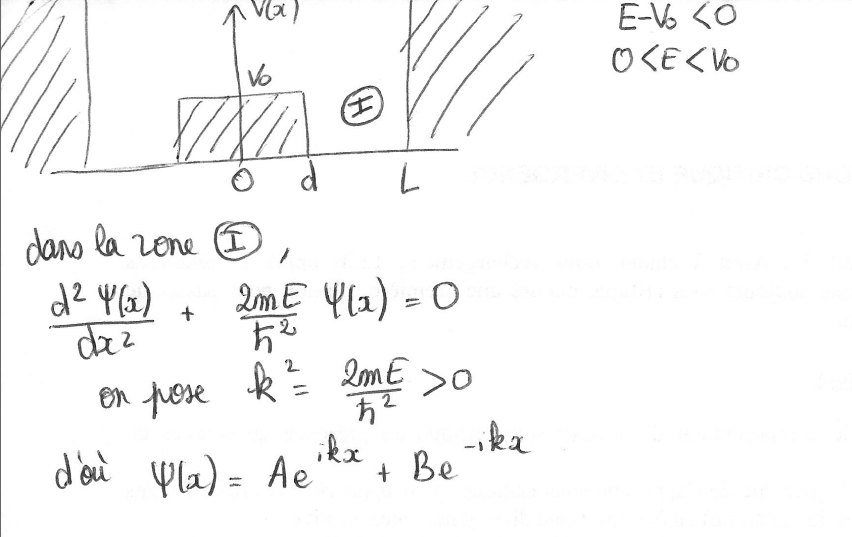 V(x)
E-V₀ < 0
0 < E < V₀
V₀
I
O d L
dans la zone I,
d² Ψ(x)/dx² + 2mE/ħ² Ψ(x) = 0
on pose k² = 2mE/ħ² > 0
d'où Ψ(x) = Ae^{ikx} + Be^{-ikx}